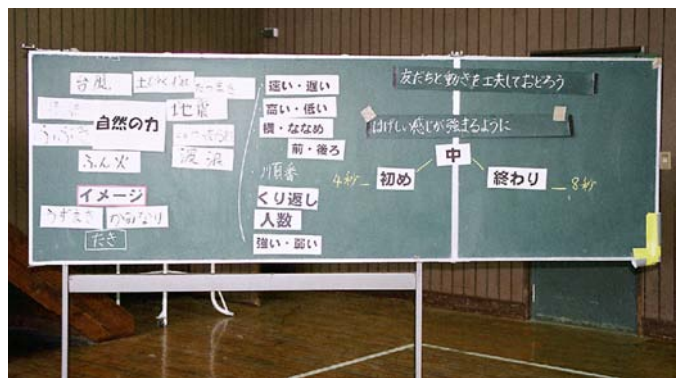 台風
土しゃくずれ
たつまき
自然の力
地震
ふぶき
津波
ふん火
イメージ
うずまき
かみなり
たき
速い・遅い
高い・低い
横・ななめ
前・後ろ
・順番
くり返し
人数
強い・弱い
友だちと動きを工夫しておどろう
はげしい感じが強まるように
中
4秒
初め
終わり
8秒